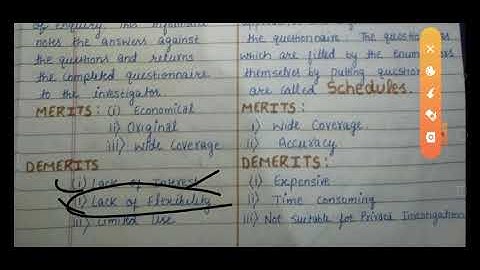 of enquiry. This informant
notes the answers against
the questions and returns
the completed questionnaire
to the investigator
MERITS: (i) Economical
ii) Original
iii) Wide Coverage
DEMERITS
(i) Lack of Interest
ii) Lack of Flexibility
iii) Limited Use
the questionnaire. The
which are filled by the
themselves by putting
are called Schedules.
MERITS:
i) Wide Coverage.
ii) Accuracy
DEMERITS:
i) Expensive
ii) Time Consuming
iii) Not Suitable for Private